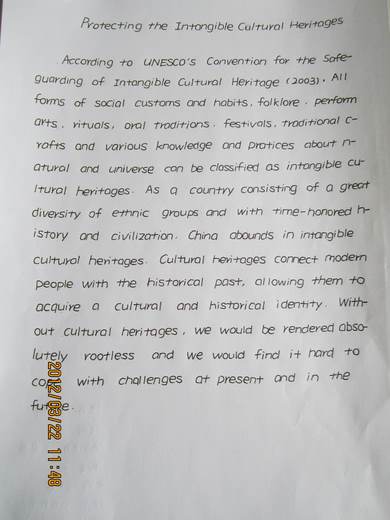 Protecting the Intangible Cultural Heritages
According to UNESCO's Convention for the Safe-
guarding of Intangible Cultural Heritage (2003), All
forms of social customs and habits, folklore, perform
arts, rituals, oral traditions, festivals, traditional c-
rafts and various knowledge and pratices about n-
atural and universe can be classified as intangible cu-
ltural heritages. As a country consisting of a great
diversity of ethnic groups and with time-honored h-
istory and civilization. China abounds in intangible
cultural heritages. Cultural heritages connect modern
people with the historical past, allowing them to
acquire a cultural and historical identity. With-
out cultural heritages, we would be rendered abso-
lutely rootless and we would find it hard to
cope with challenges at present and in the
future.
2012/03/22 11:48